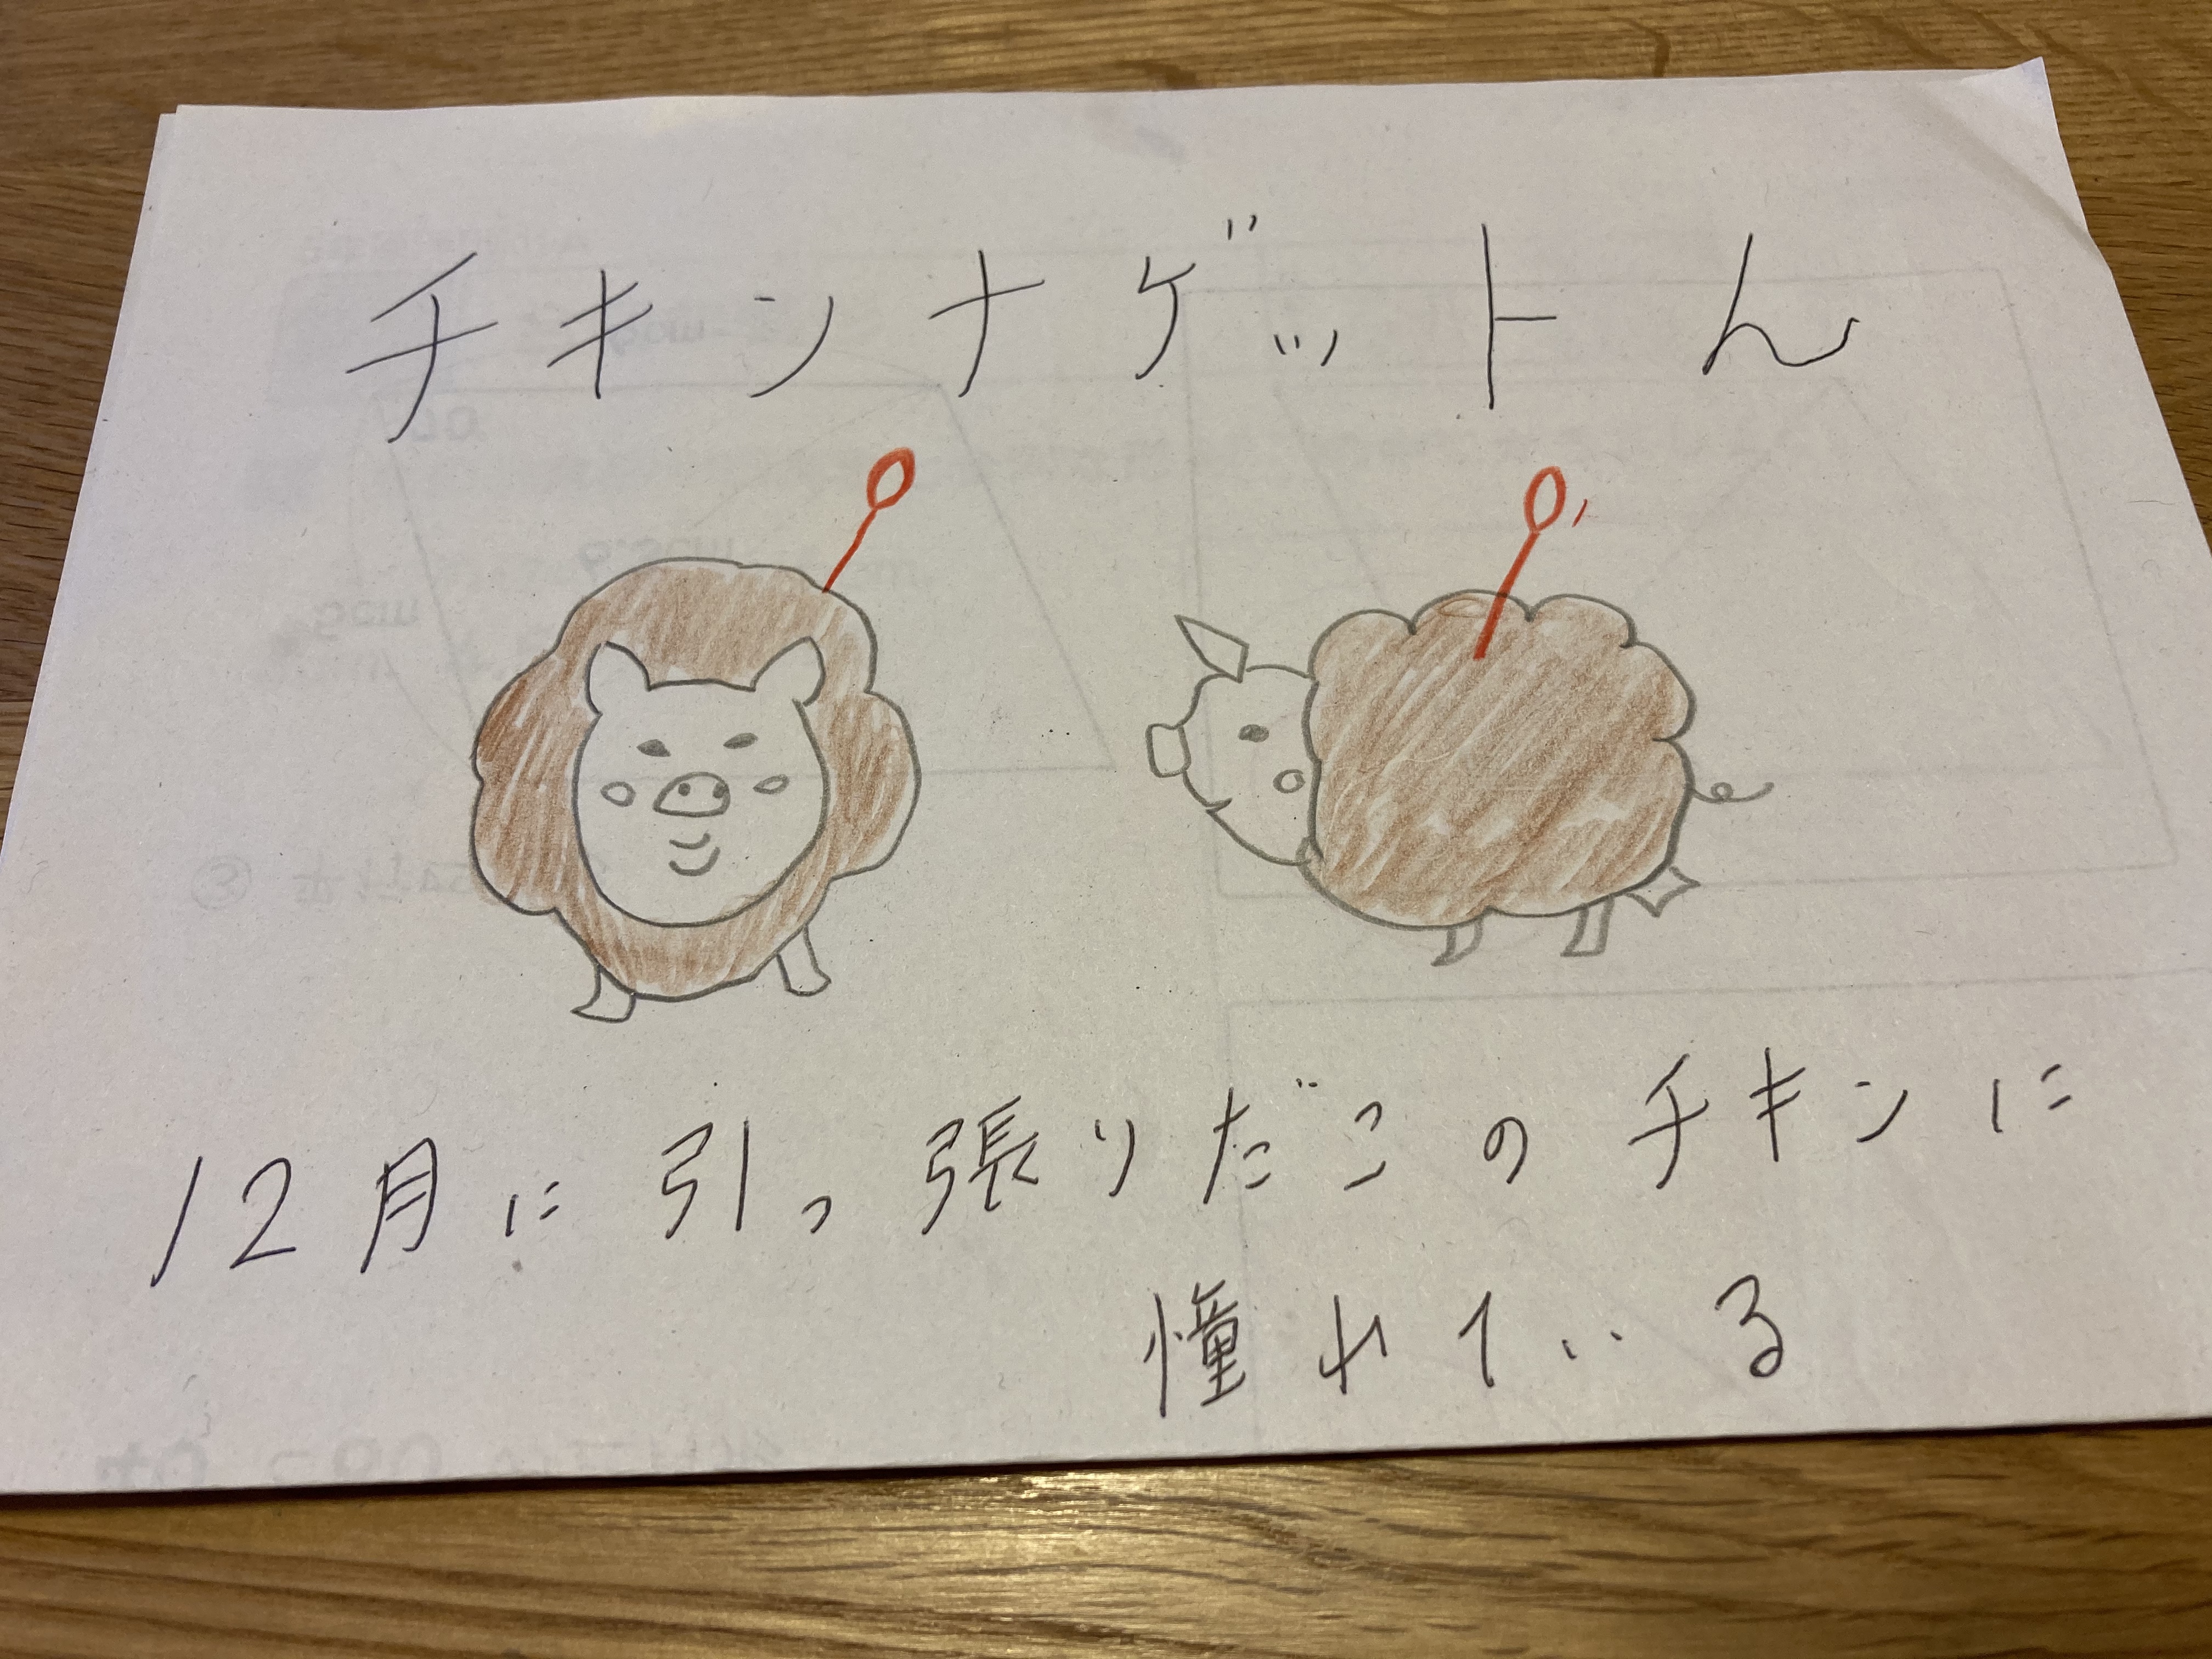 チキンナゲットん
12月に引っ張りだこのチキンに
憧れている